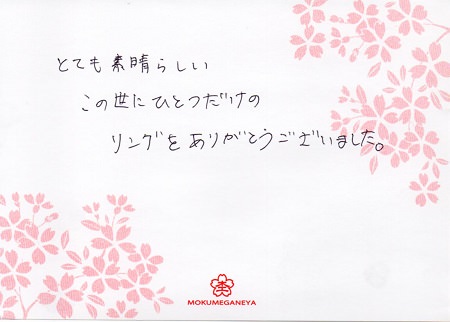 とても素晴らしい
この世にひとつだけの
リングをありがとうございました。
MOKUMEGANEYA